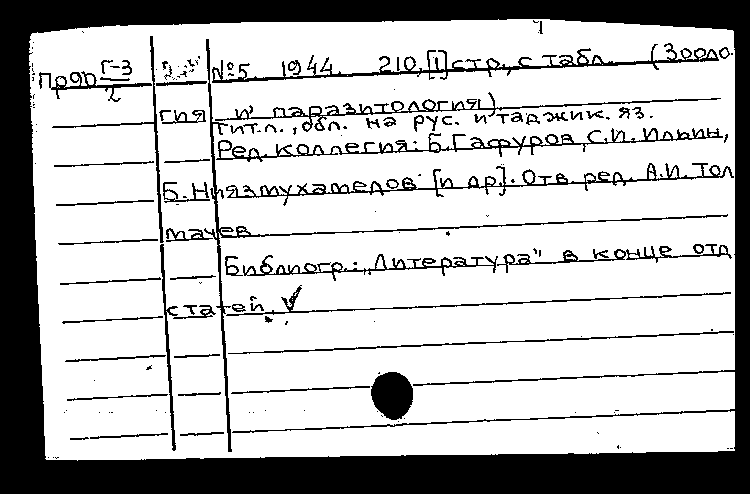 Пр90 Г-3/2 №5. 1944. 210,[1]стр., с табл. (Зооло-
гия и паразитология).
Тит.л., обл. на рус. и таджик. яз.
Ред. коллегия: Б.Гафуров, С.И. Ильин,
Б. Ниязмухамедов [и др.]. Отв. ред. А.И. Тол
мачев.
Библиогр.: „Литература" в конце отд
статей.